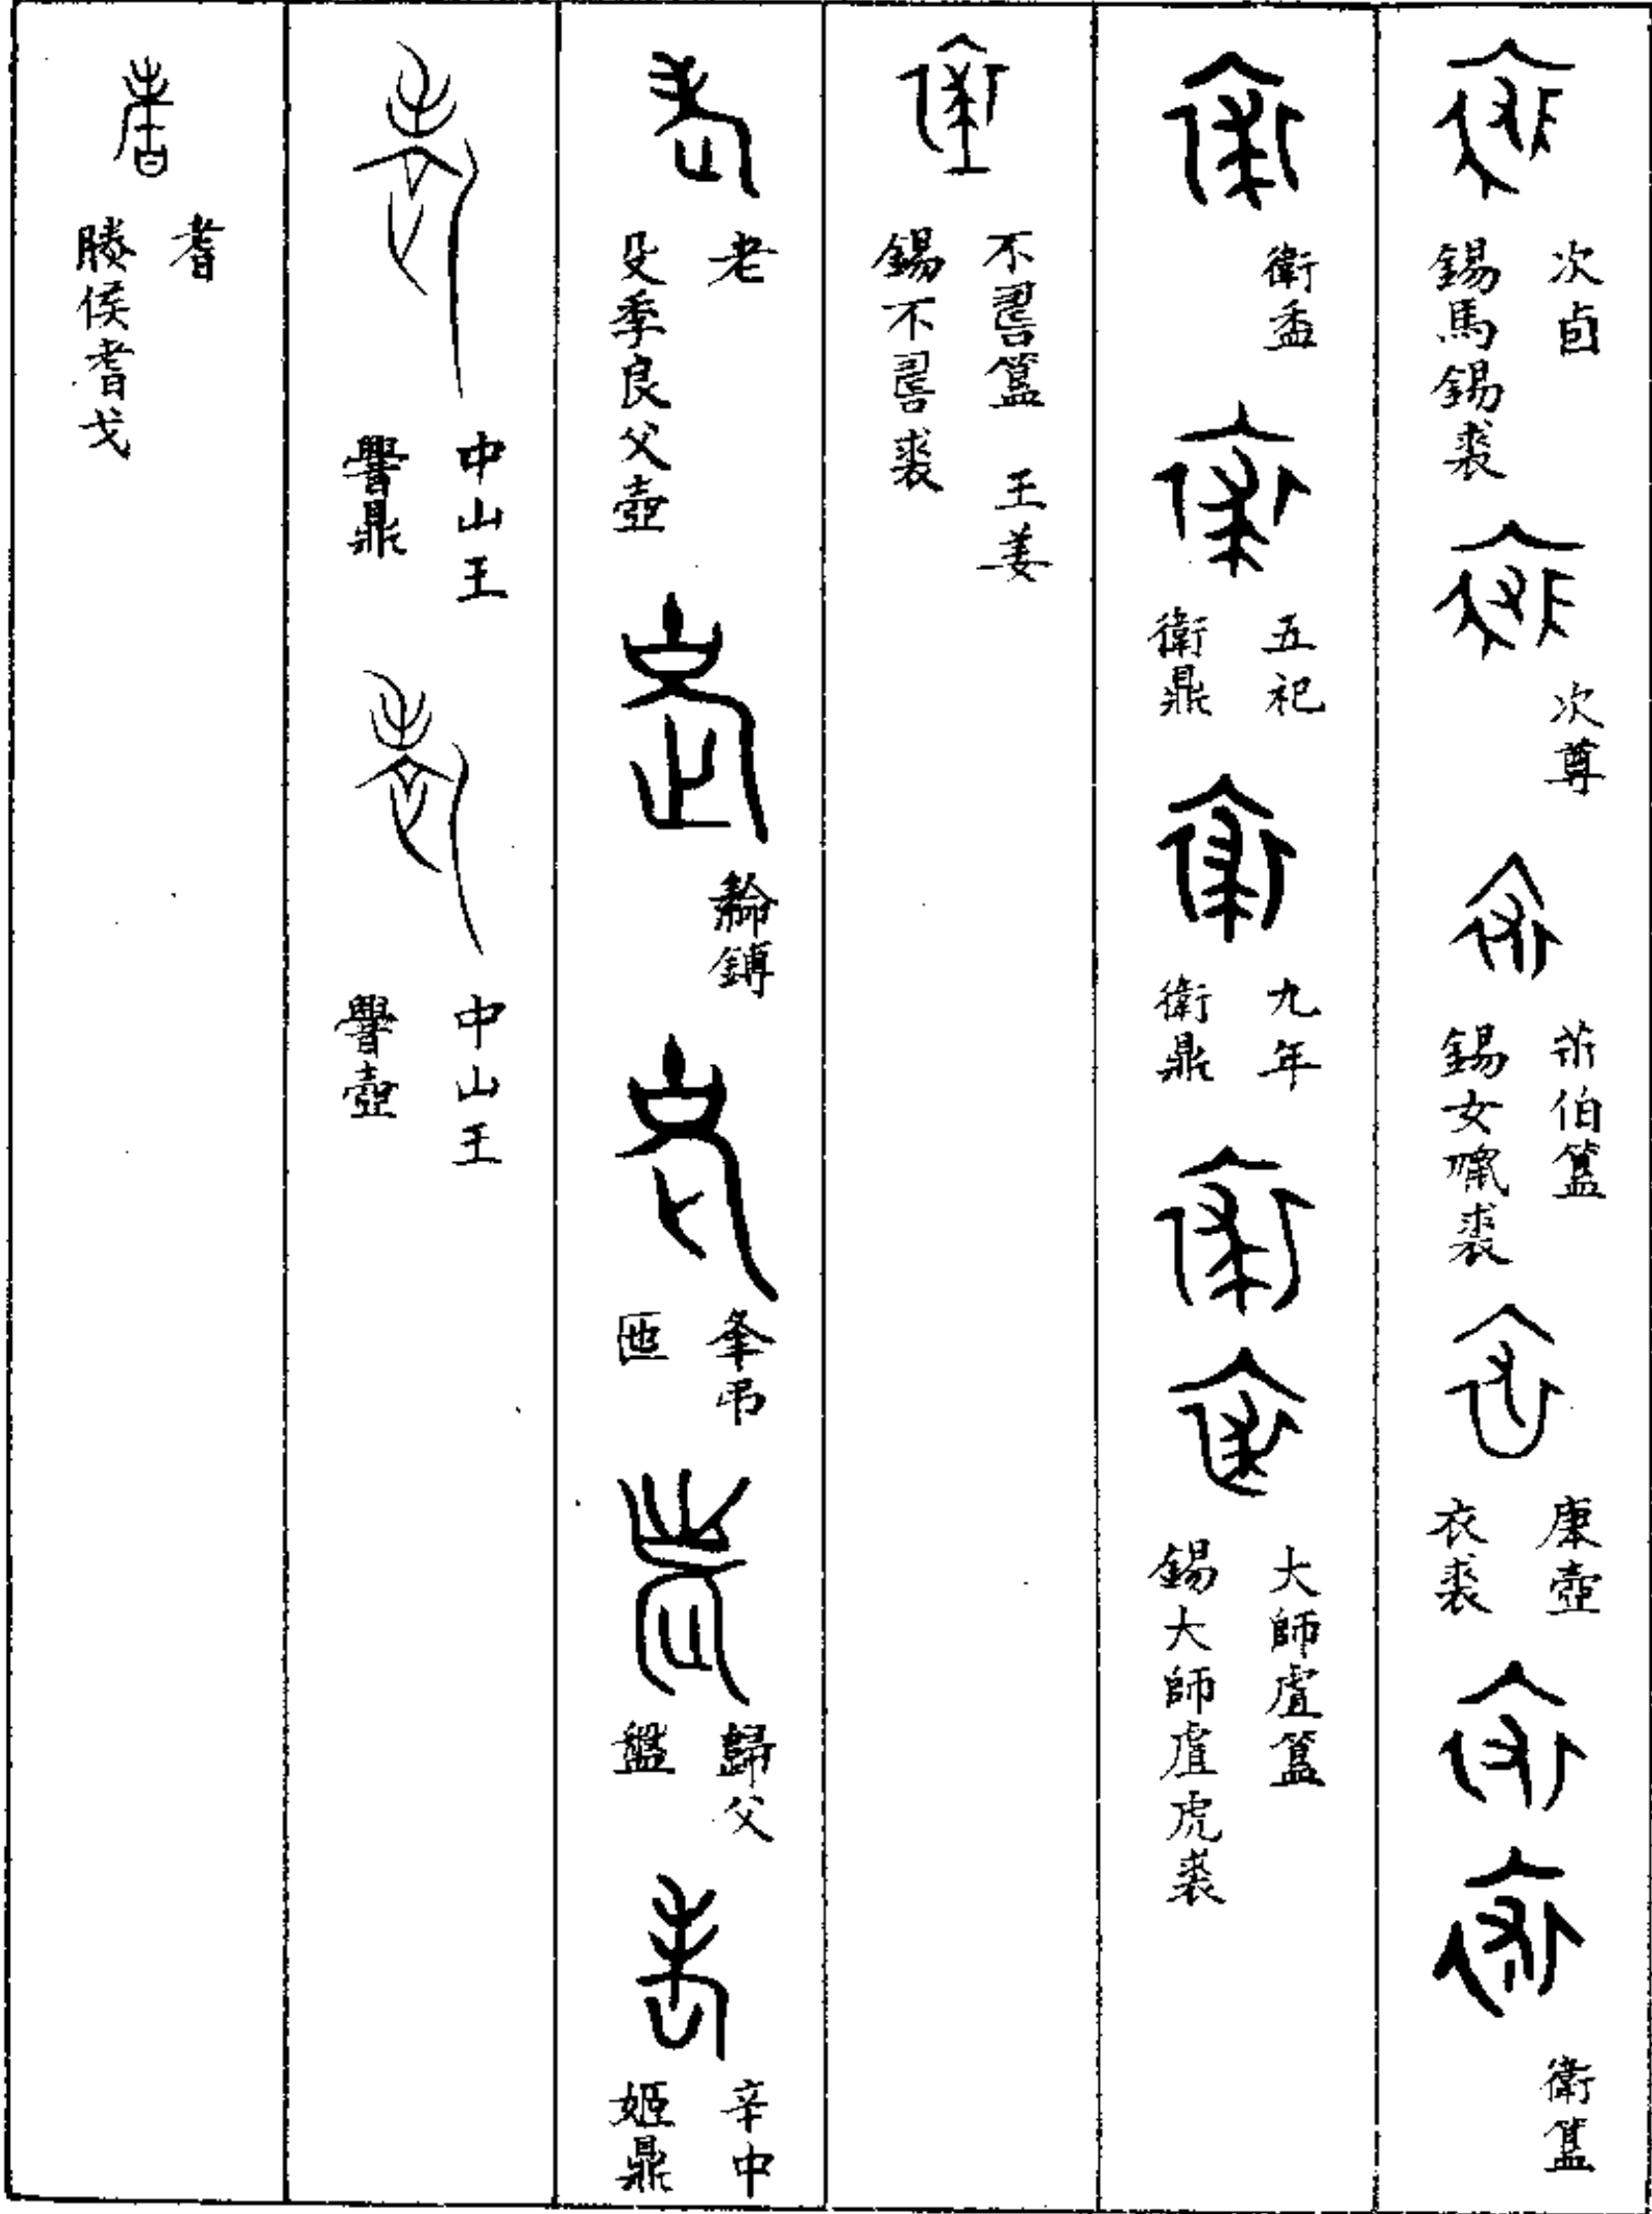 次卣
錫馬錫裘
次尊
伯簋
錫女裘
康壺
衣裘
衛簋
衛盉
五祀
衛鼎
九年
衛鼎
大師虘簋
錫大師虘虎裘
不㫚簋 王姜
錫不㫚裘
老
殳季良父壺
鎛
夆弔
匜
歸父
盤
辛中
姬鼎
中山王
譽鼎
中山王
譽壺
耆
滕侯耆戈